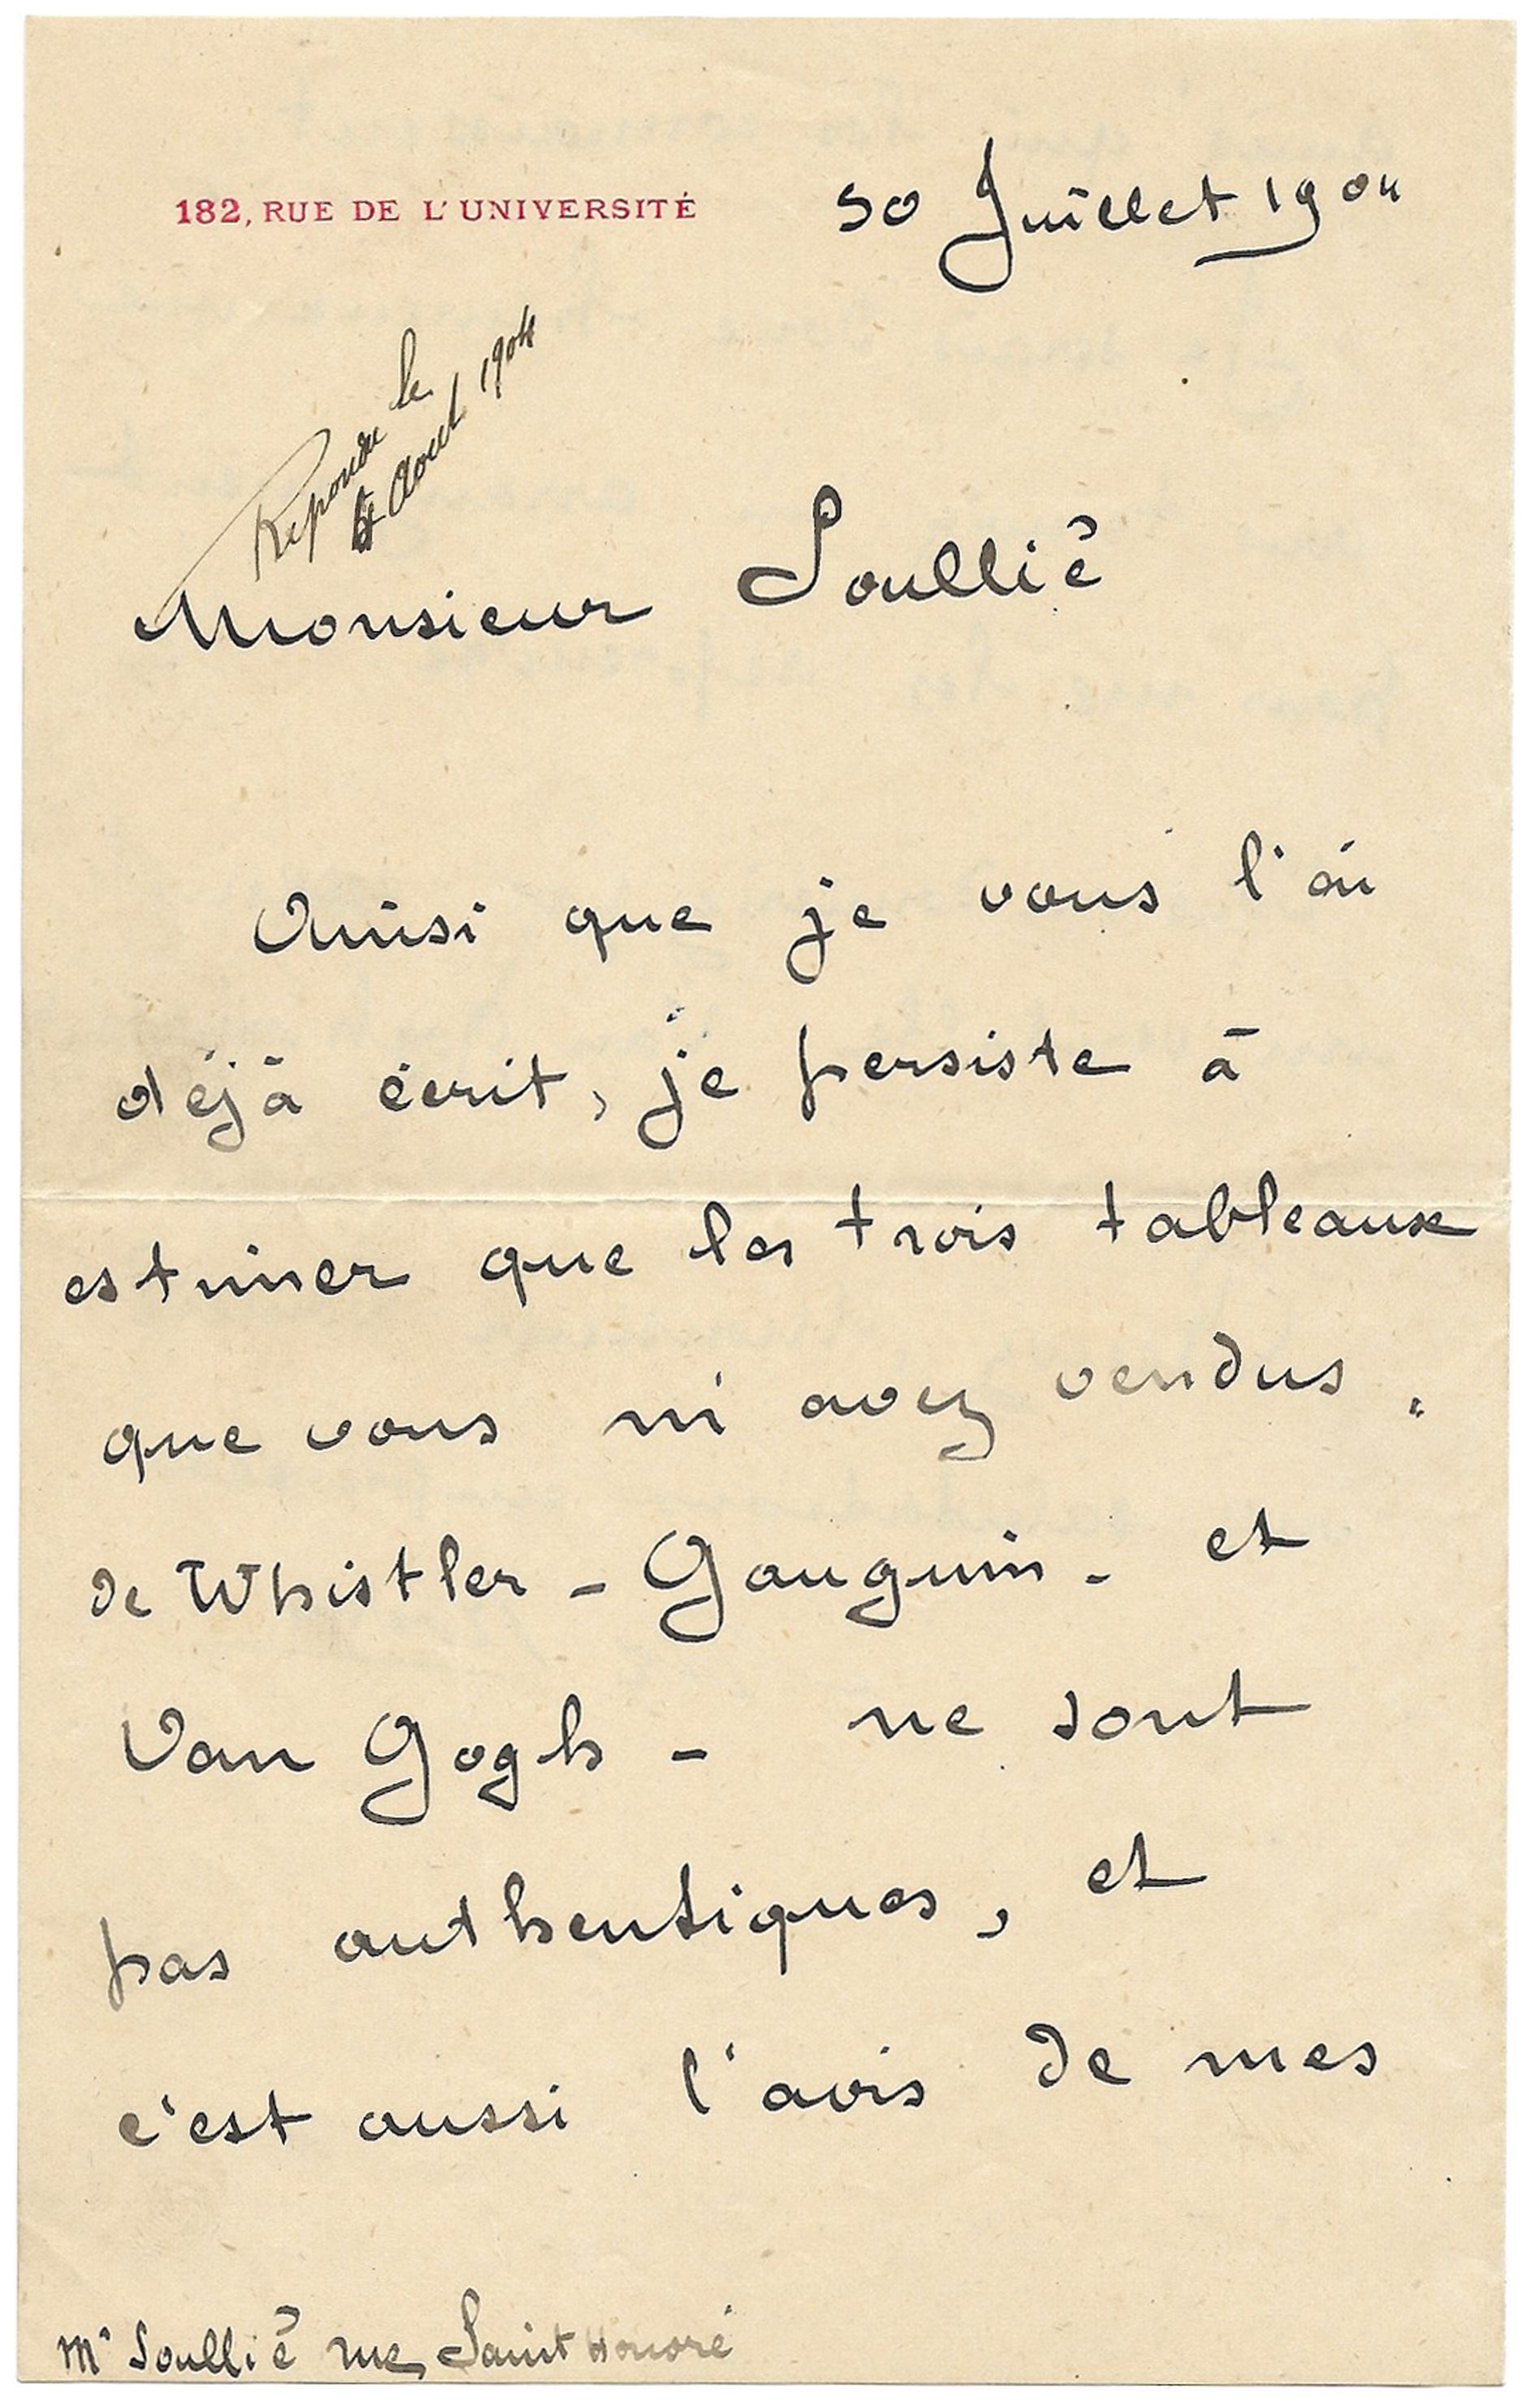 182, RUE DE L'UNIVERSITÉ
30 Juillet 1904
Repondu le
4 Aout 1904
Monsieur Soullié
Ainsi que je vous l'ai
déjà écrit, je persiste à
estimer que les trois tableaux
que vous m'avez vendus.
de Whistler - Gauguin - et
Van Gogh - ne sont
pas authentiques, et
c'est aussi l'avis de mes
Mr Soullié rue Saint Honoré